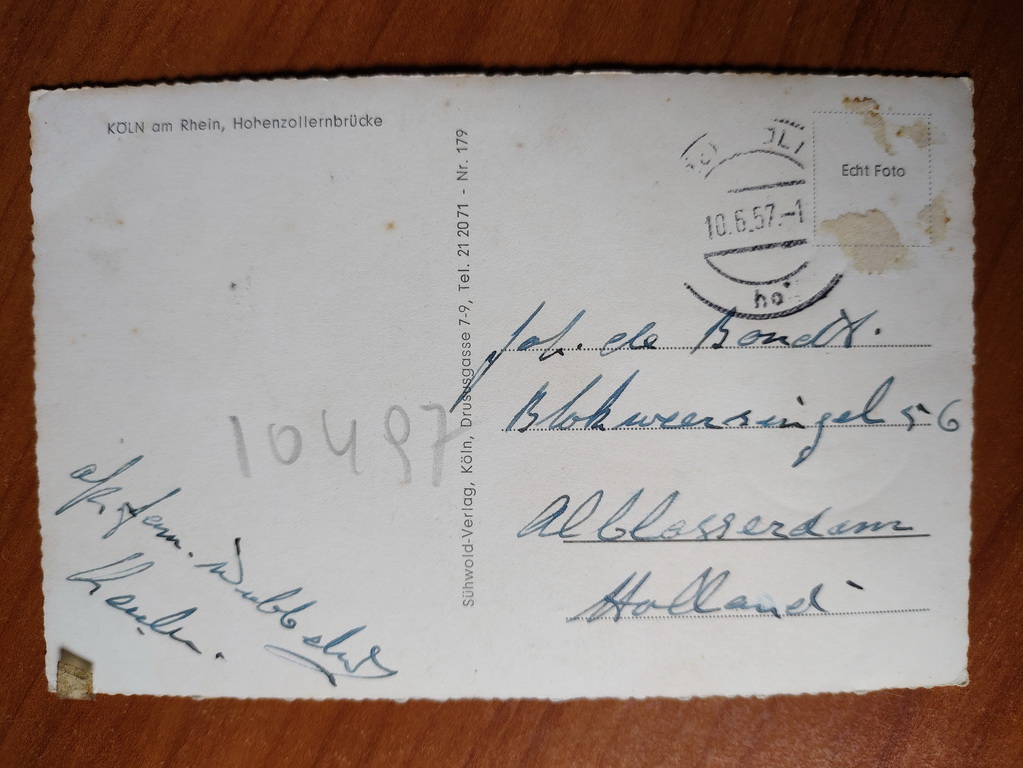 KÖLN am Rhein, Hohenzollernbrücke
Sühwold-Verlag, Köln, Drususgasse 7-9, Tel. 21 20 71 - Nr. 179
Echt Foto
10.6.57.-1
ho
Joh. de Bondt.
Blokweersingel 56
Alblasserdam
Holland
10497
afz. fam.